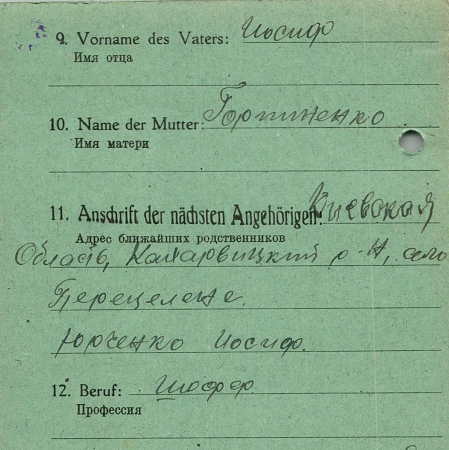 9. Vorname des Vaters: Иосиф
Имя отца
10. Name der Mutter: Горпиненко
Имя матери
11. Anschrift der nächsten Angehörigen: Киевская
Адрес ближайших родственников
Область, Кагарвицкий р-н, село
Перецелене.
Юрченко Иосиф.
12. Beruf: Шофер
Профессия